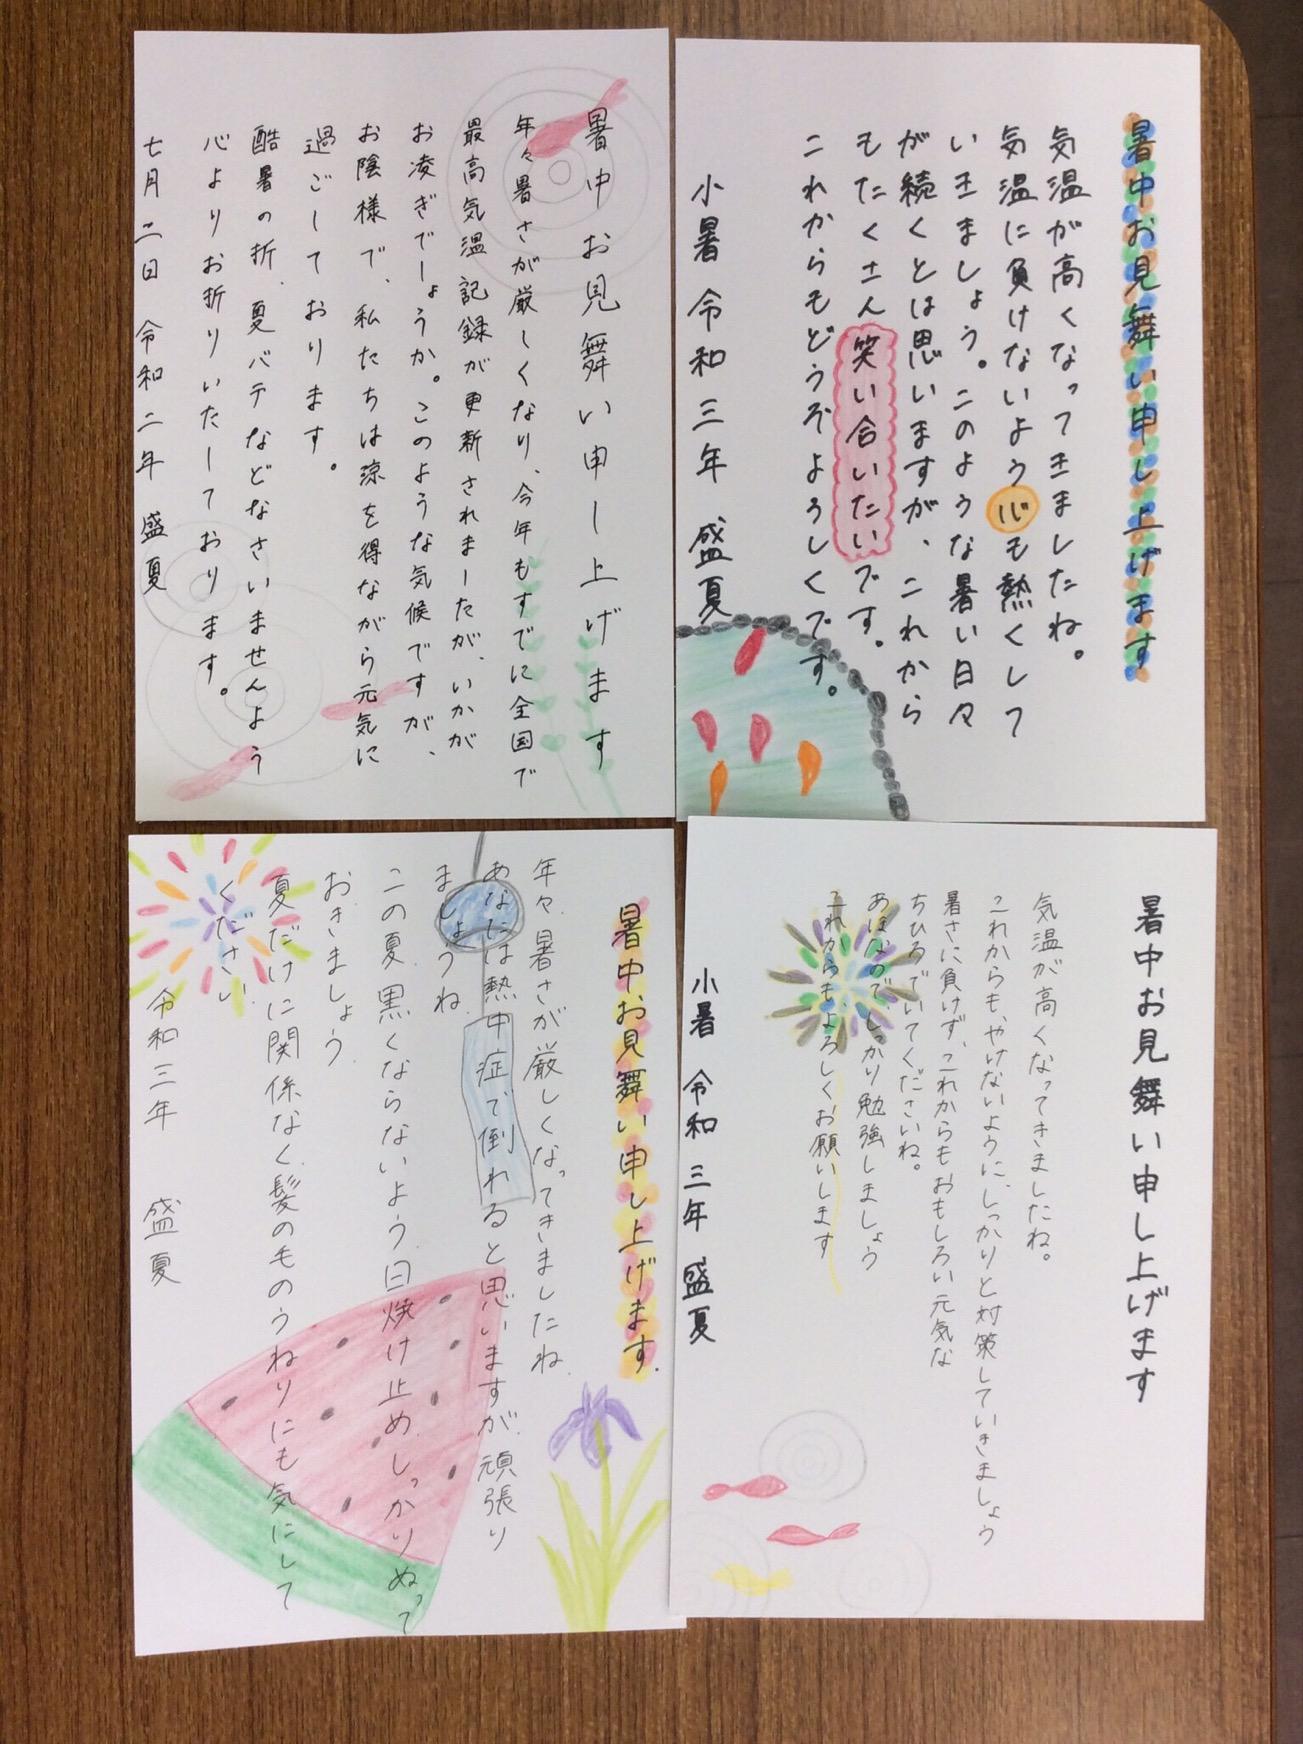 暑中お見舞い申し上げます
気温が高くなってきましたね。
気温に負けないよう心も熱くして
いきましょう。このような暑い日々
が続くとは思いますが、これから
もたくさん笑い合いたいです。
これからもどうぞよろしくです。
小暑 令和三年 盛夏
暑中お見舞い申し上げます
年々暑さが厳しくなり、今年もすでに全国で
最高気温記録が更新されましたが、いかが
お凌ぎでしょうか。このような気候ですが、
お陰様で、私たちは涼を得ながら元気に
過ごしております。
酷暑の折、夏バテなどなさいませんよう
心よりお折りいたしております。
七月二日 令和二年 盛夏
暑中お見舞い申し上げます
気温が高くなってきましたね。
これからも、やけないように、しっかりと対策していきましょう
暑さに負けず、これからもおもしろい元気な
ちひろでいてくださいね。
あほなので、しっかり勉強しましょう
これからもよろしくお願いします
小暑 令和 三年 盛夏
暑中お見舞い申し上げます.
年々暑さが厳しくなってきましたね.
あなたは熱中症で倒れると思いますが頑張り
ましょうね.
この夏黒くならないよう日焼け止めしっかりぬって
おきましょう.
夏だけに関係なく髪の毛のうねりにも気にして
ください.
令和三年 盛夏